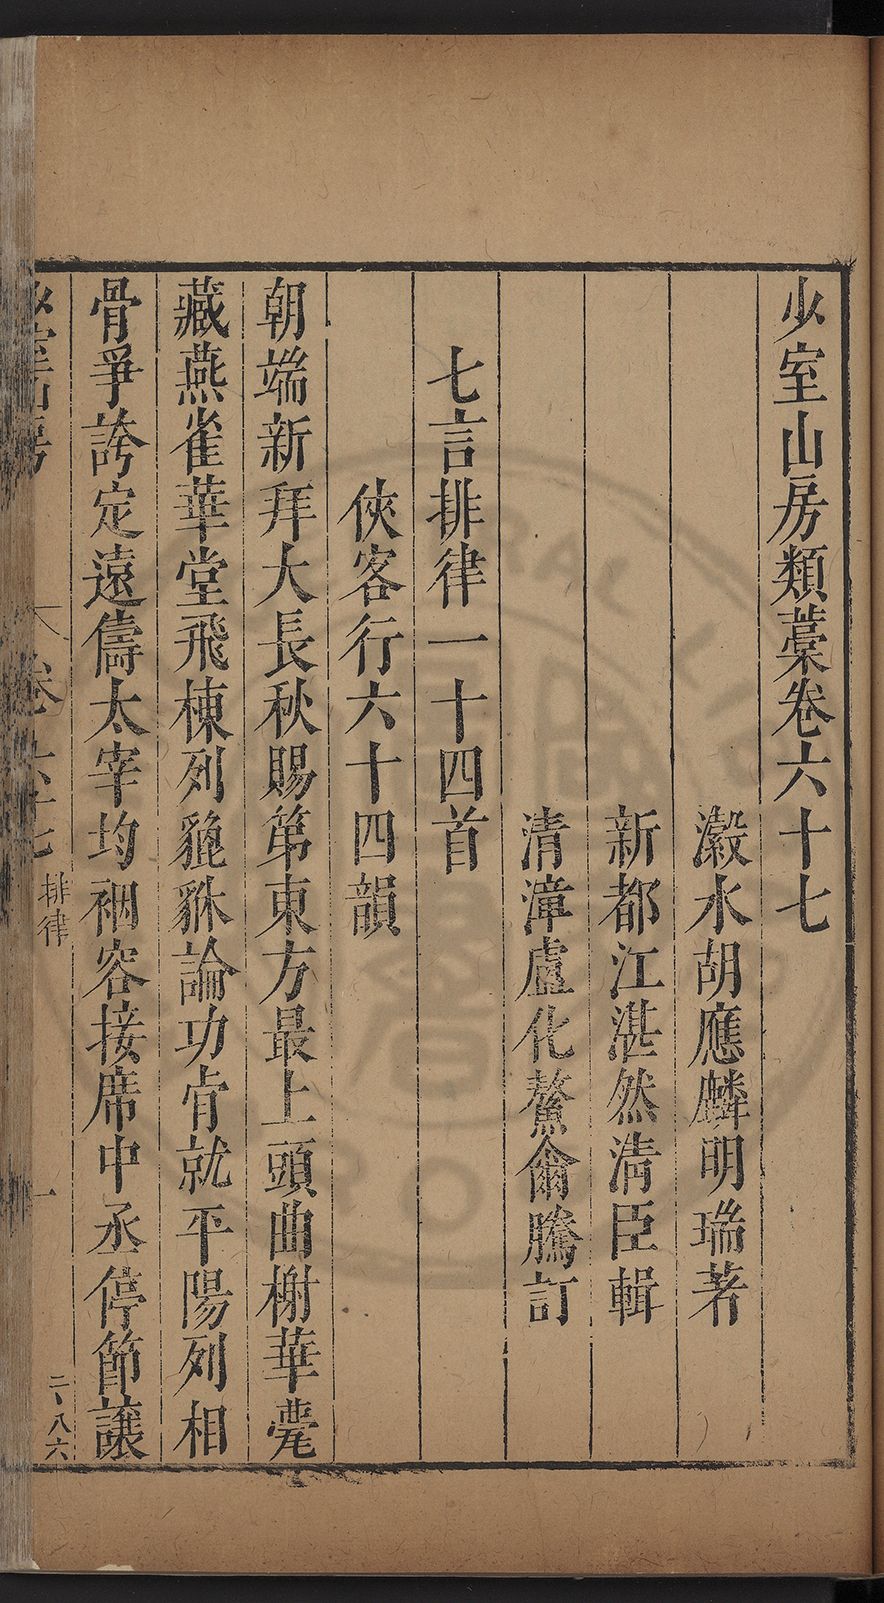 少室山房類藁卷六十七
瀫水胡應麟明瑞著
新都江湛然清臣輯
清漳盧化鰲爾騰訂
七言排律一十四首
俠客行六十四韻
朝端新拜大長秋賜第東方最上頭曲榭華甍
藏燕雀華堂飛棟列貔貅論功肯就平陽列相
骨爭誇定遠儔太宰均裀容接席中丞停節讓
少室山房
卷六十七
排律
一
二丶八六